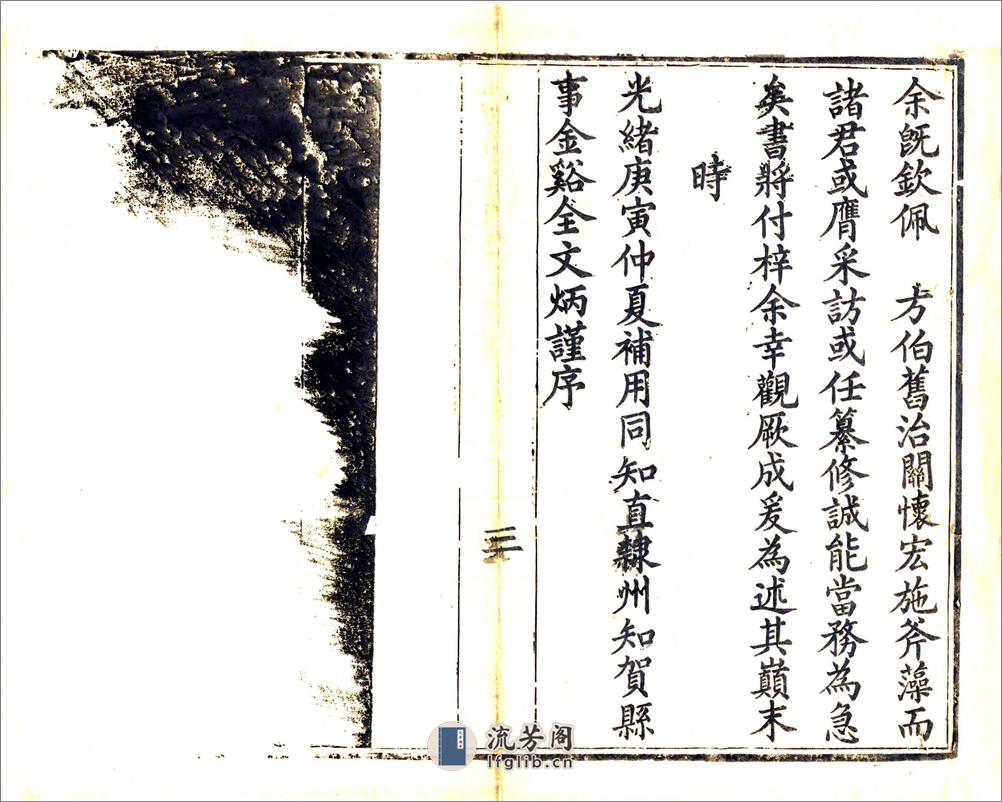 余旣欽佩　方伯舊治關懷宏施斧藻而
諸君或膺采訪或任纂修誠能當務為急
矣書將付梓余幸觀厥成爰為述其巔末
時
光緒庚寅仲夏補用同知直隸州知賀縣
事金谿全文炳謹序
三
流芳阁
lfglib.cn